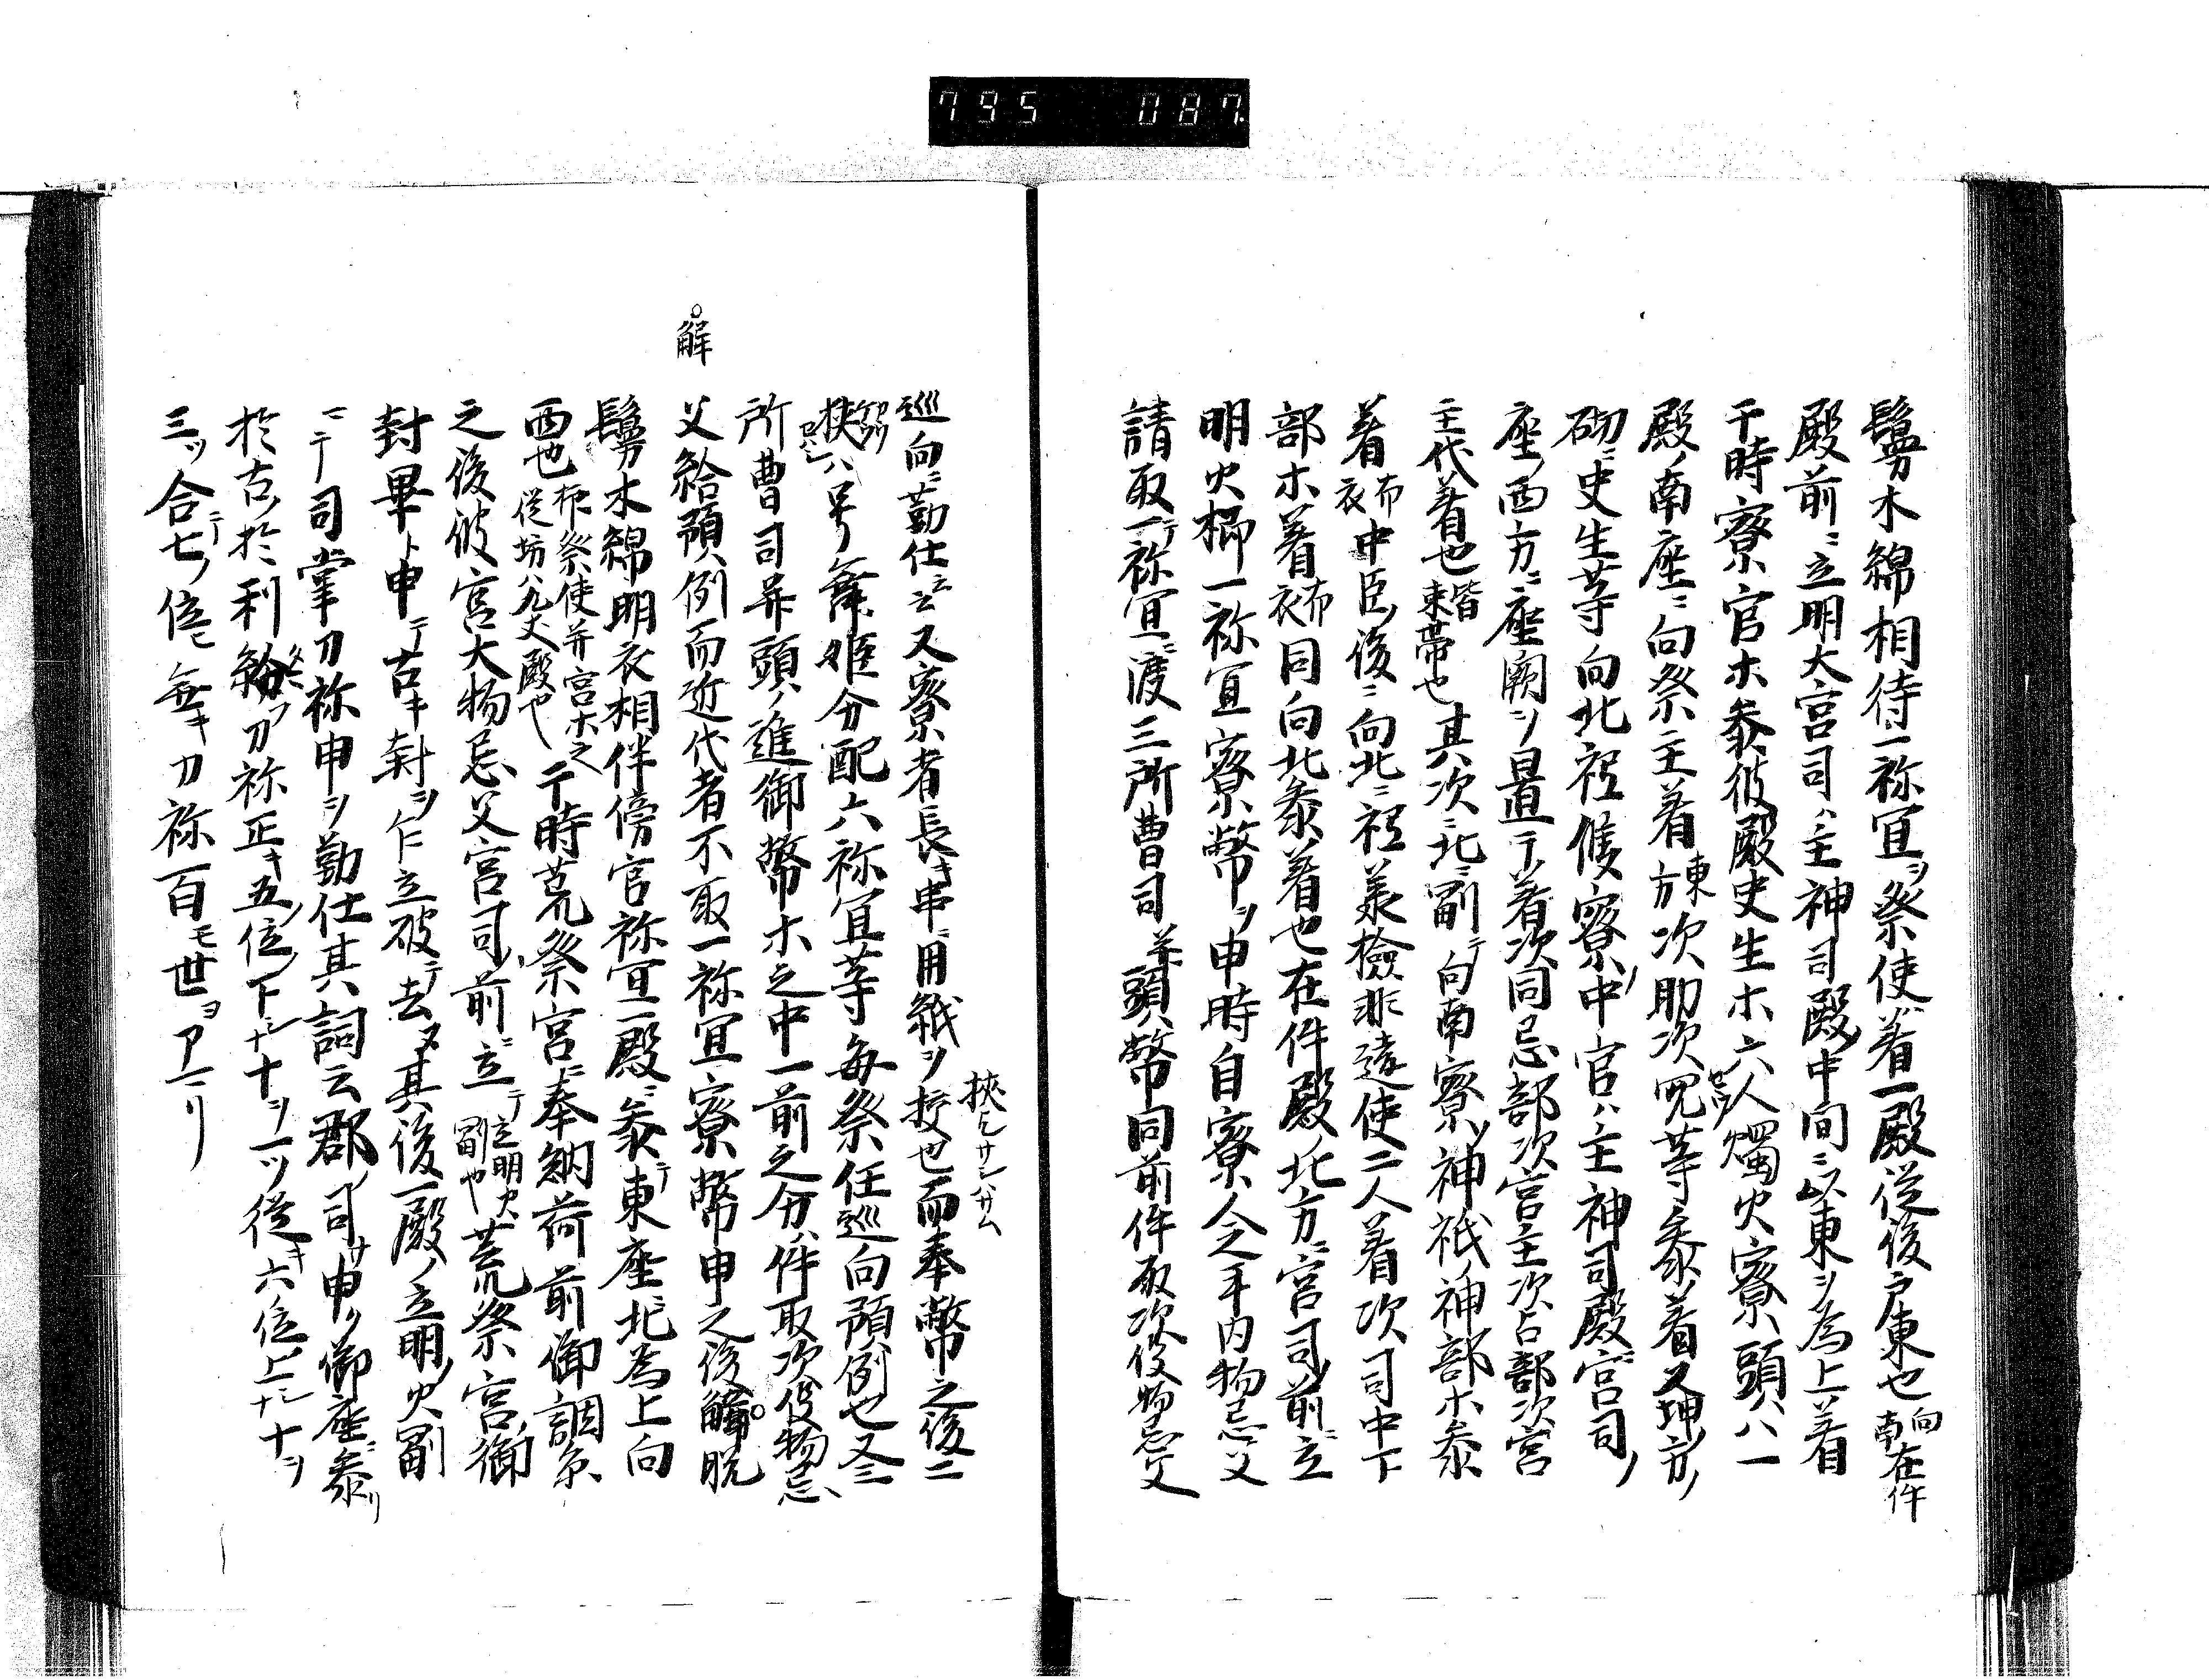 795 087
鬘木綿相待一祢宜ヲ祭使ハ着一殿従後戸東也向南在件
殿前ニ立明大宮司ハ主神司殿ノ中間ニ以東ヲ為上着
于時寮官ホ参彼殿史生ホ六人燭火寮頭ハ一
殿ノ南座ニ向祭主着東方次助次允等参着又坤方ノ
砌ニ史生等向北祗候寮ノ中官ハ主神司殿ニ宮司ノ
座ノ西方ニ座闕ヲ置テ着次同忌部次宮主次占部次宮
主代着也皆束帯也其次ニ北ニ副テ向南寮ノ神祇ノ神部ホ参
着布衣中臣ノ後ニ向北ニ祗美檢非違使二人着次司中下
部ホ着布衣同向北参着也在件殿ノ北方ニ宮司ノ前ニ立
明火櫛一祢宜寮幣ヲ申時自寮人之手内物忌父
請取テ一祢宜ニ渡三所曹司并頭ハ幣同前件取次役物忌父
巡向ニ勤仕云云又寮者長キ串ニ用紙ヲ挍也而奉幣之後二
挾ムサシハサム
挾ハ号舞姫分配六祢宜等毎祭任巡向預例也又三
所曹司并頭ハ進御幣ホ之中一前之分ハ件取次役物忌
父給預ハ例而近代者不取一祢宜寮幣申之後解脱
解
鬘木綿明衣相伴傍官祢宜一殿ニ参テ東座ニ北為上向
西也祢祭使并宮ホ之従坊八九丈殿也于時荒祭宮ニ奉納荷前御調糸
之後彼宮大物忌父宮司ノ前ニ立テ立明火副也荒祭宮ノ御
封畢ト申テ古キ封ヲ仁立破テ去ヌ其後一殿ノ立明ノ火副
ニテ司掌刀祢申ヲ勤仕其詞云郡ノ司サ申ク御座ニ参リ
於古於利給タマフ刀祢正キ五位ノ下ナシ十ヲ一ツ従キ六位上ナシ十ヲ
三ツ合テ七ノ位ニ無キ刀祢一百モ世ヲアニリ